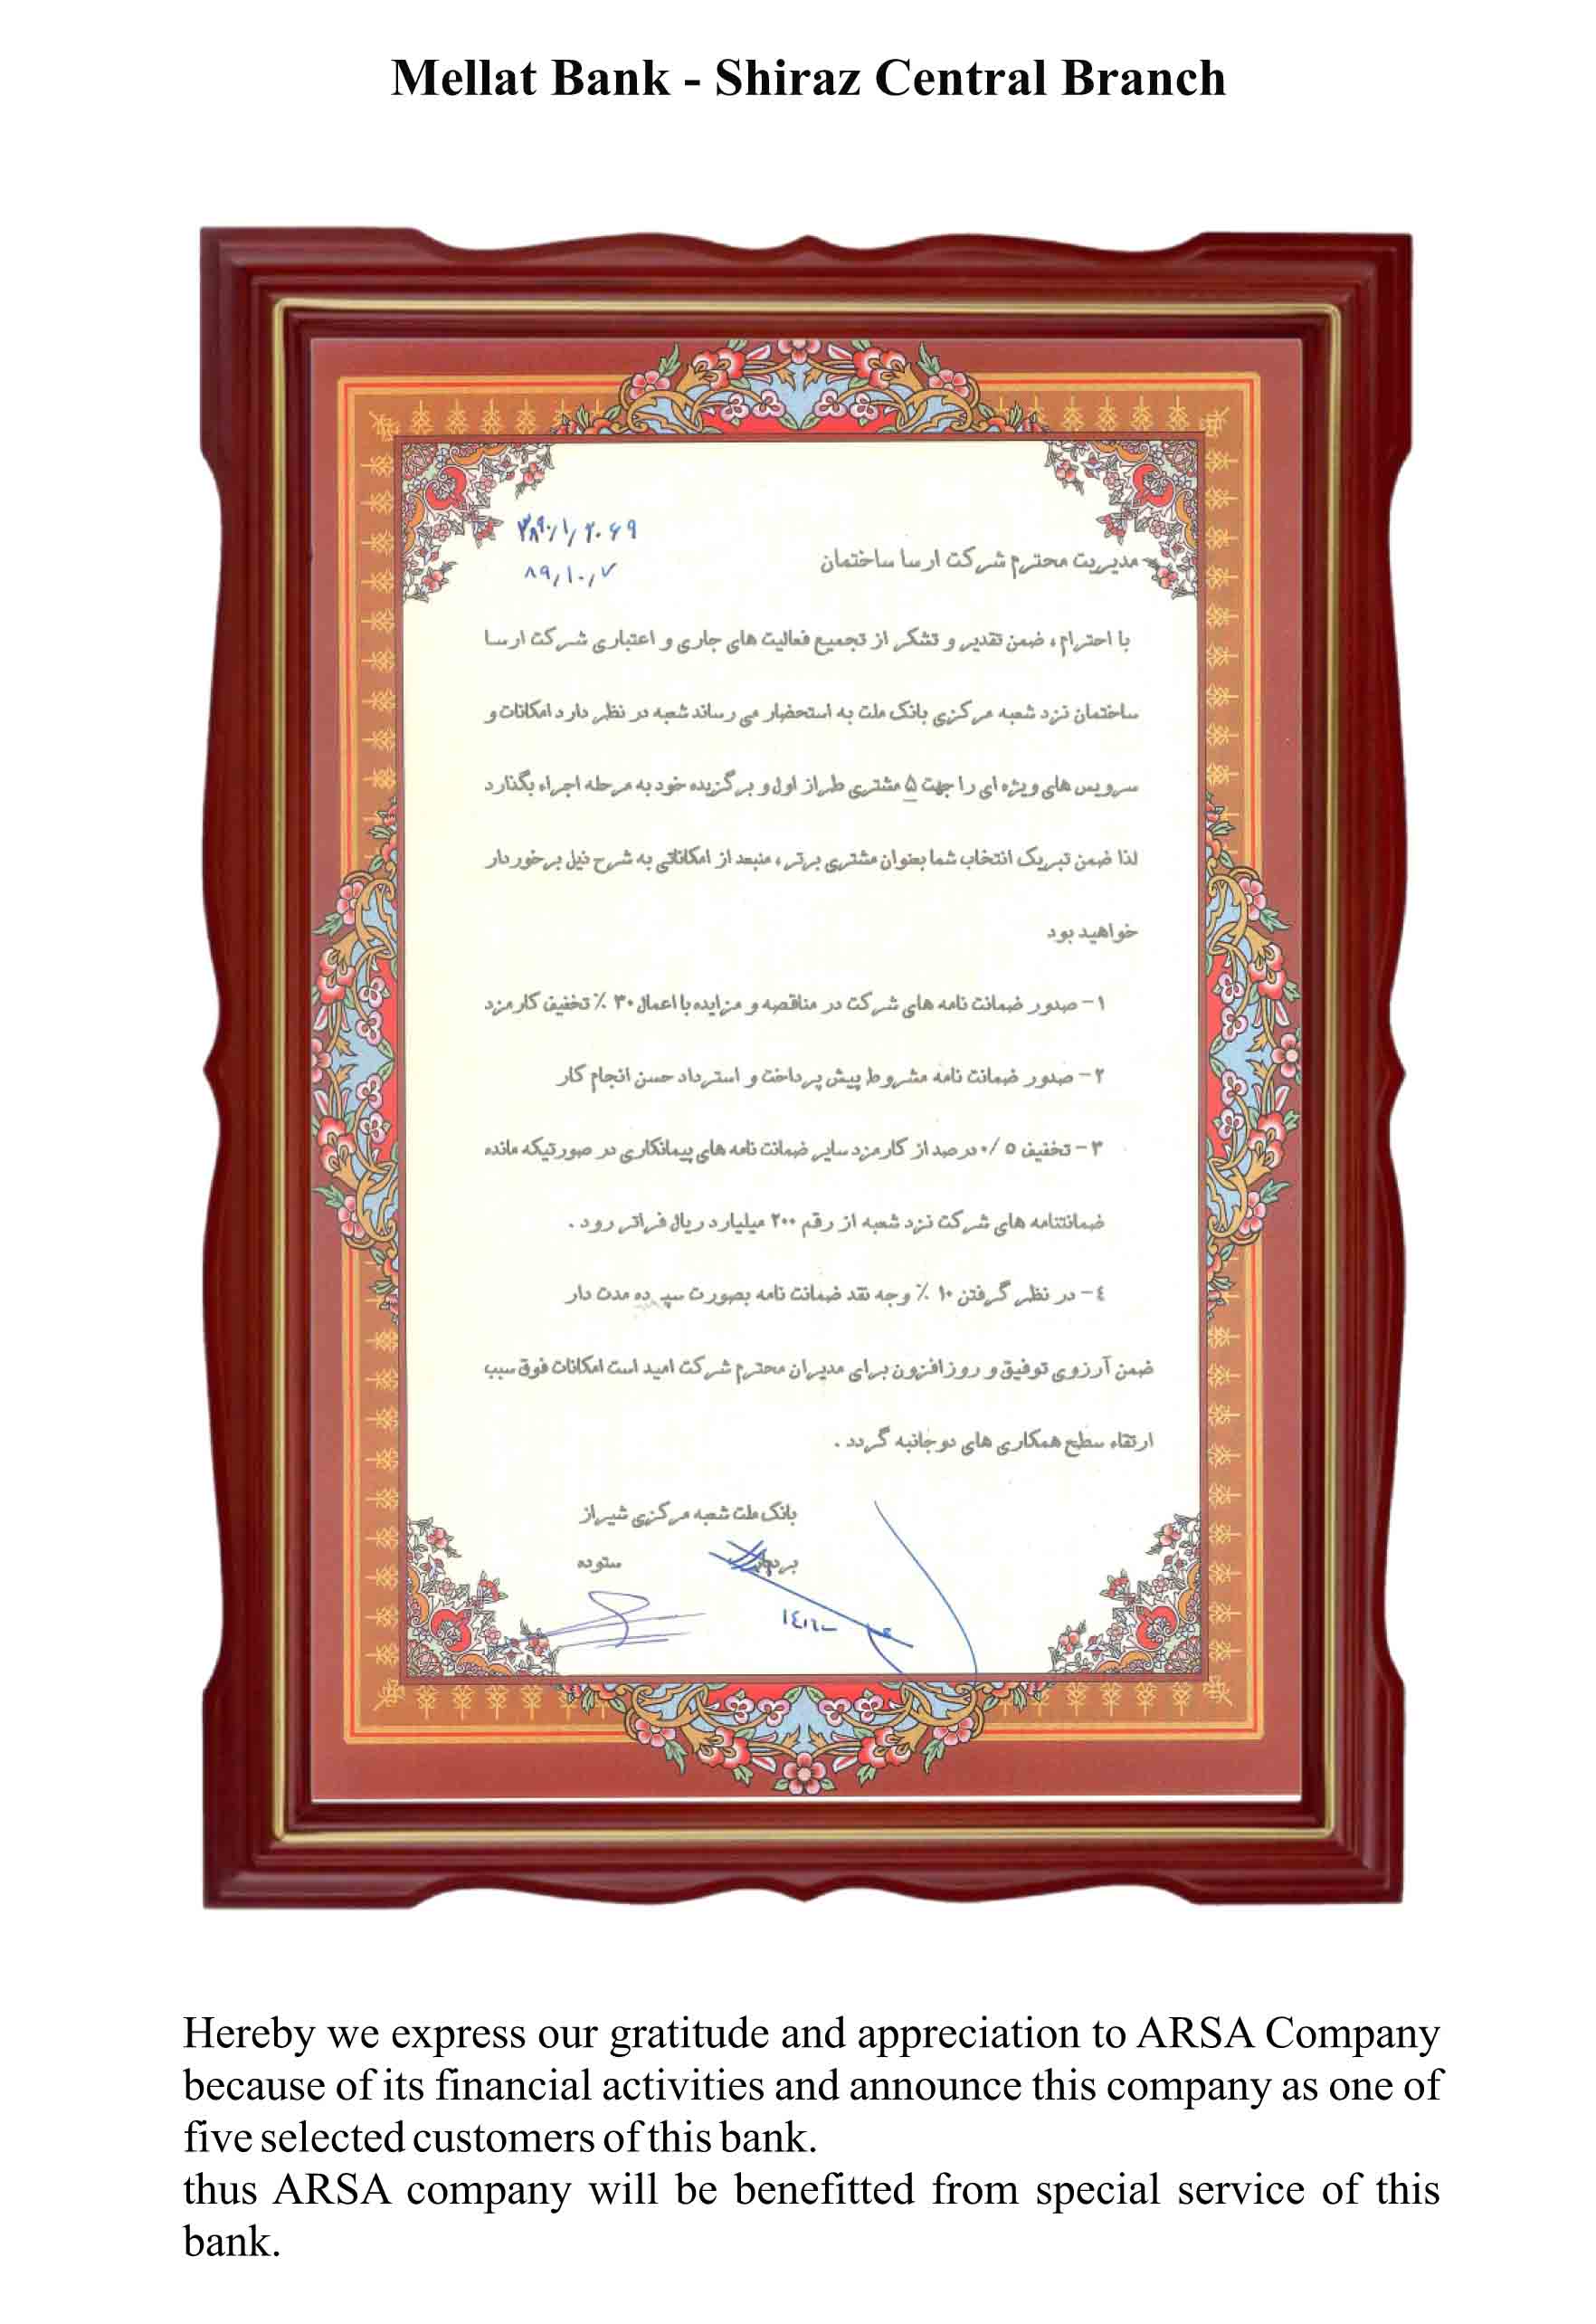 Mellat Bank - Shiraz Central Branch
۸۹/۱۰/۷
مدیریت محترم شرکت ارسا ساختمان
با احترام، ضمن تقدیر و تشکر از تجمیع فعالیت های جاری و اعتباری شرکت ارسا
ساختمان نزد شعبه مرکزی بانک ملت به استحضار می رساند شعبه در نظر دارد امکانات و
سرویس های ویژه ای را جهت ۵ مشتری طراز اول و برگزیده خود به مرحله اجراء بگذارد
لذا ضمن تبریک انتخاب شما بعنوان مشتری برتر، منبعد از امکاناتی به شرح ذیل برخوردار
خواهید بود
۱- صدور ضمانت نامه های شرکت در مناقصه و مزایده با اعمال ۳۰ ٪ تخفیف کارمزد
۲- صدور ضمانت نامه مشروط پیش پرداخت و استرداد حسن انجام کار
۳- تخفیف ۰/۵ درصد از کارمزد سایر ضمانت نامه های پیمانکاری در صورتیکه مانده
ضمانتنامه های شرکت نزد شعبه از رقم ۲۰۰ میلیارد ریال فراتر رود .
٤- در نظر گرفتن ۱۰ ٪ وجه نقد ضمانت نامه بصورت سپرده مدت دار
ضمن آرزوی توفیق و روزافزون برای مدیران محترم شرکت امید است امکانات فوق سبب
ارتقاء سطح همکاری های دو جانبه گردد .
بانک ملت شعبه مرکزی شیراز
ستوده
Hereby we express our gratitude and appreciation to ARSA Company
because of its financial activities and announce this company as one of
five selected customers of this bank.
thus ARSA company will be benefitted from special service of this
bank.